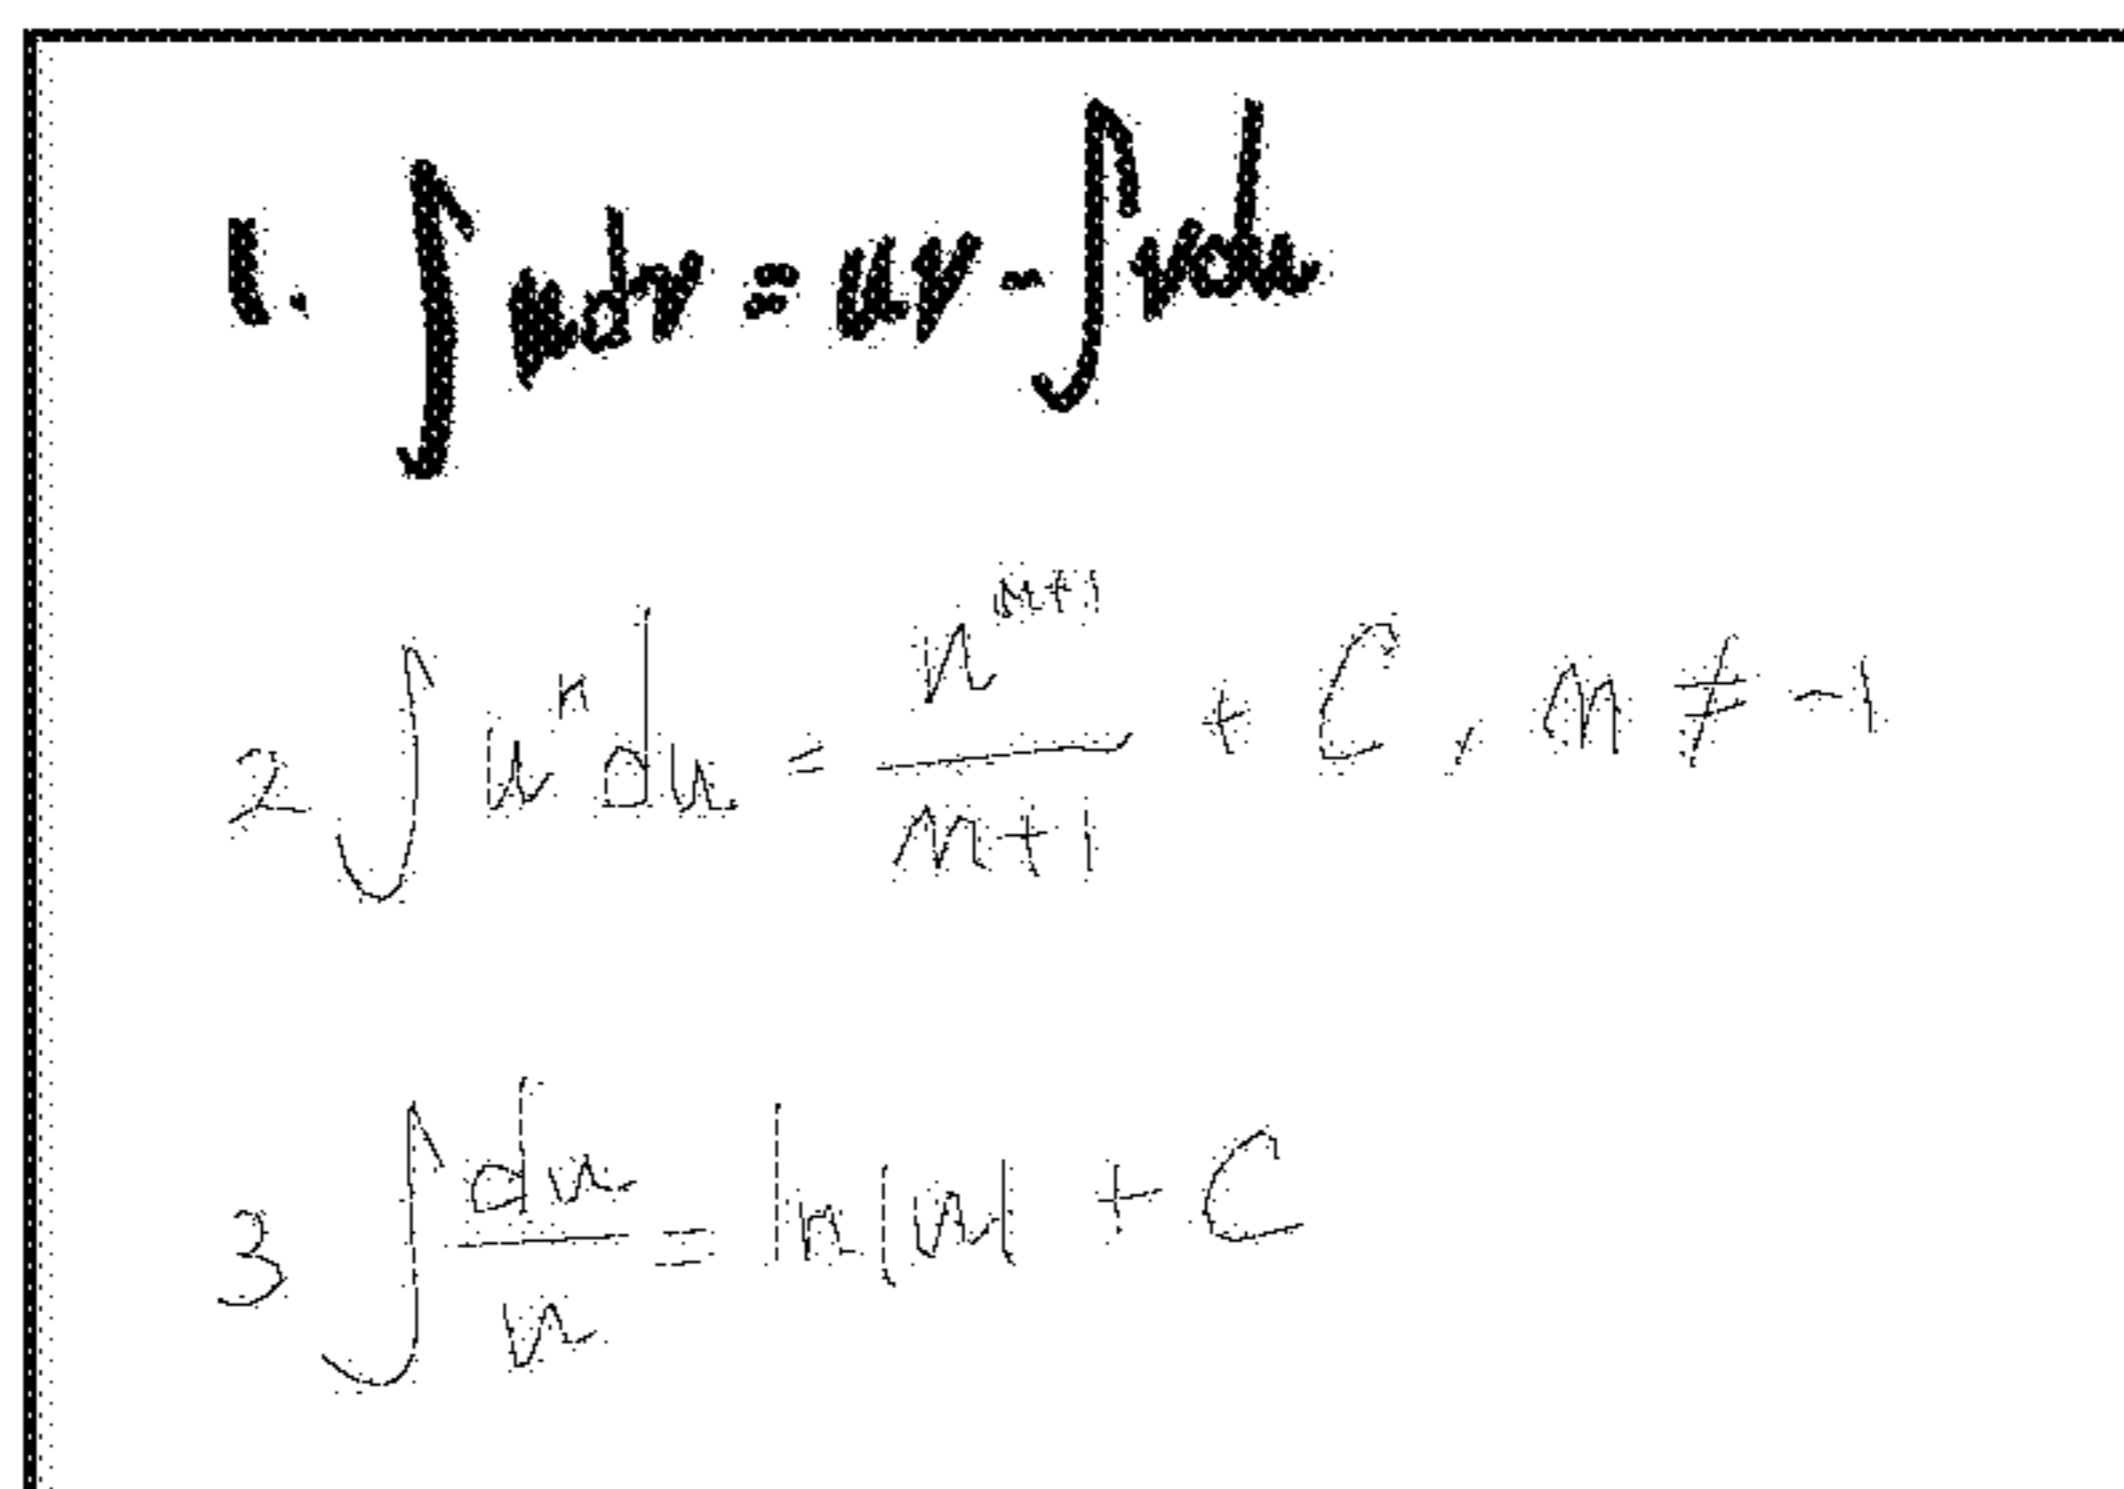 1. ∫ u dv = uv - ∫ v du
2 ∫ u^n du = u^(n+1) / (n+1) + C, n ≠ -1
3 ∫ du/u = ln|u| + C